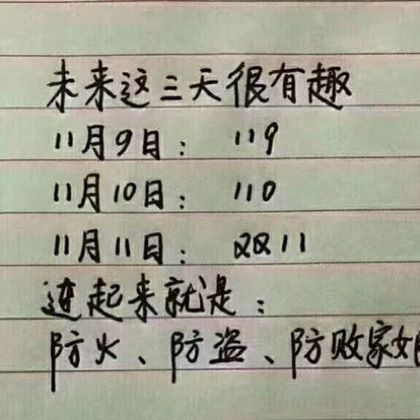 未来这三天很有趣
11月9日: 119
11月10日: 110
11月11日: 双11
连起来就是:
防火、防盗、防败家